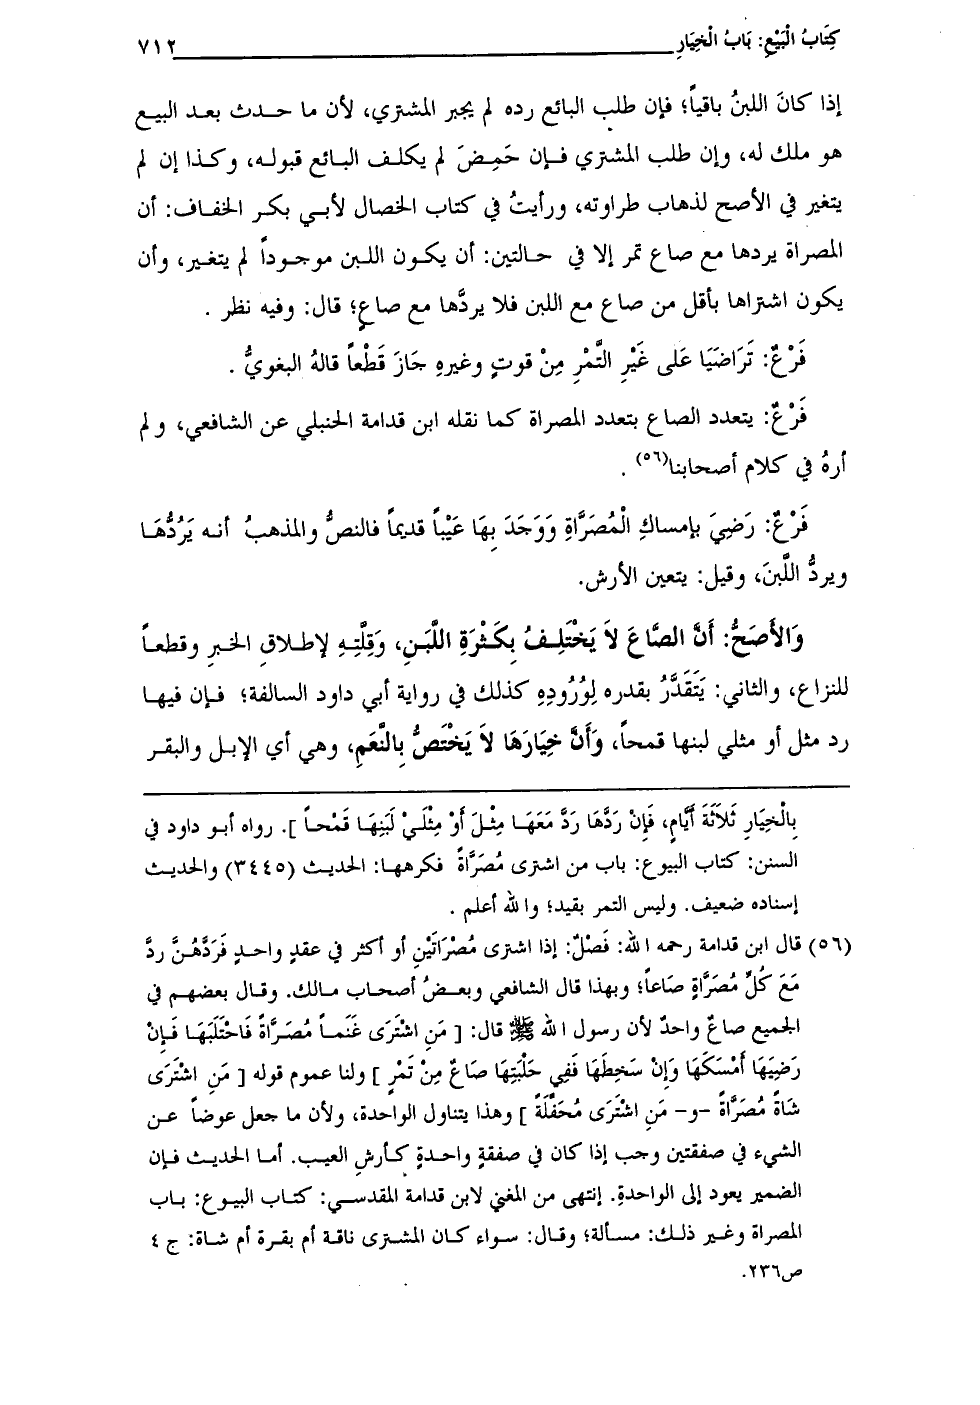 كِتَابُ الْبَيْعِ: بَابُ الْخِيَارِ ٧١٢
إذا كانَ اللبنُ باقياً؛ فإن طلب البائع رده لم يجبر المشتري، لأن ما حدث بعد البيع
هو ملك له، وإن طلب المشتري فإن حَمِضَ لم يكلف البائع قبوله، وكذا إن لم
يتغير في الأصح لذهاب طراوته، ورأيتُ في كتاب الخصال لأبي بكر الخفاف: أن
المصراة يردها مع صاع تمر إلا في حالتين: أن يكون اللبن موجوداً لم يتغير، وأن
يكون اشتراها بأقل من صاع مع اللبن فلا يردَّها مع صاعٍ؛ قال: وفيه نظر .
فَرْعٌ: تَرَاضَيَا عَلى غَيْرِ التَّمْرِ مِنْ قوتٍ وغيرهِ جَازَ قَطْعاً قالهُ البغويُّ .
فَرْعٌ: يتعدد الصاع بتعدد المصراة كما نقله ابن قدامة الحنبلي عن الشافعي، ولم
أرهُ في كلام أصحابنا(٥٦) .
فَرْعٌ: رَضِيَ بإمساكِ الْمُصَرَّاةِ وَوَجَدَ بِهَا عَيْباً قديماً فالنصُّ والمذهبُ أنه يَرُدُّهَا
ويردُّ اللَّبنَ، وقيل: يتعين الأرش.
وَالأَصَحُّ: أَنَّ الصَّاعَ لاَ يَخْتَلِفُ بِكَثْرَةِ اللَّبَنِ، وَقِلَّتِهِ لإطلاقِ الخبرِ وقطعاً
للنزاع، والثاني: يَتَقَدَّرُ بقدره لِوُرُودِهِ كذلك في رواية أبي داود السالفة؛ فإن فيها
رد مثل أو مثلي لبنها قمحاً، وَأَنَّ خِيَارَهَا لاَ يَخْتَصُّ بِالنَّعَمِ، وهي أي الإبل والبقر
بِالْخِيَارِ ثَلاَثَةَ أَيَّامٍ، فَإِنْ رَدَّهَا رَدَّ مَعَهَا مِثْلَ أَوْ مِثْلَيْ لَبَنِهَا قَمْحاً ]. رواه أبو داود في
السنن: كتاب البيوع: باب من اشترى مُصَرَّاةً فكرهها: الحديث (٣٤٤٥) والحديث
إسناده ضعيف. وليس التمر بقيد؛ والله أعلم .
(٥٦) قال ابن قدامة رحمه الله: فَصْلٌ: إذا اشترى مُصْرَاتَيْنِ أو أكثر في عقدٍ واحدٍ فَرَدَّهُنَّ ردَّ
مَعَ كُلِّ مُصَرَّاةٍ صَاعاً؛ وبهذا قال الشافعي وبعضُ أصحاب مالك. وقال بعضهم في
الجميع صاعٌ واحدٌ لأن رسول الله ﷺ قال: [ مَنِ اشْتَرَى غَنَماً مُصَرَّاةً فَاحْتَلَبَهَا فَإِنْ
رَضِيَهَا أَمْسَكَهَا وَإِنْ سَخِطَهَا فَفِي حَلْبَتِهَا صَاعٌ مِنْ تَمْرٍ ] ولنا عموم قوله [ مَنِ اشْتَرَى
شَاةً مُصَرَّاةً -و- مَنِ اشْتَرَى مُحَفَّلَةً ] وهذا يتناول الواحدة، ولأن ما جعل عوضاً عن
الشيء في صفقتين وجب إذا كان في صفقةٍ واحدةٍ كأرشِ العيب. أما الحديث فإن
الضمير يعود إلى الواحدةِ. إنتهى من المغني لابن قدامة المقدسي: كتاب البيوع: باب
المصراة وغير ذلك: مسألة؛ وقال: سواء كان المشترى ناقة أم بقرة أم شاة: ج ٤
ص٢٣٦.